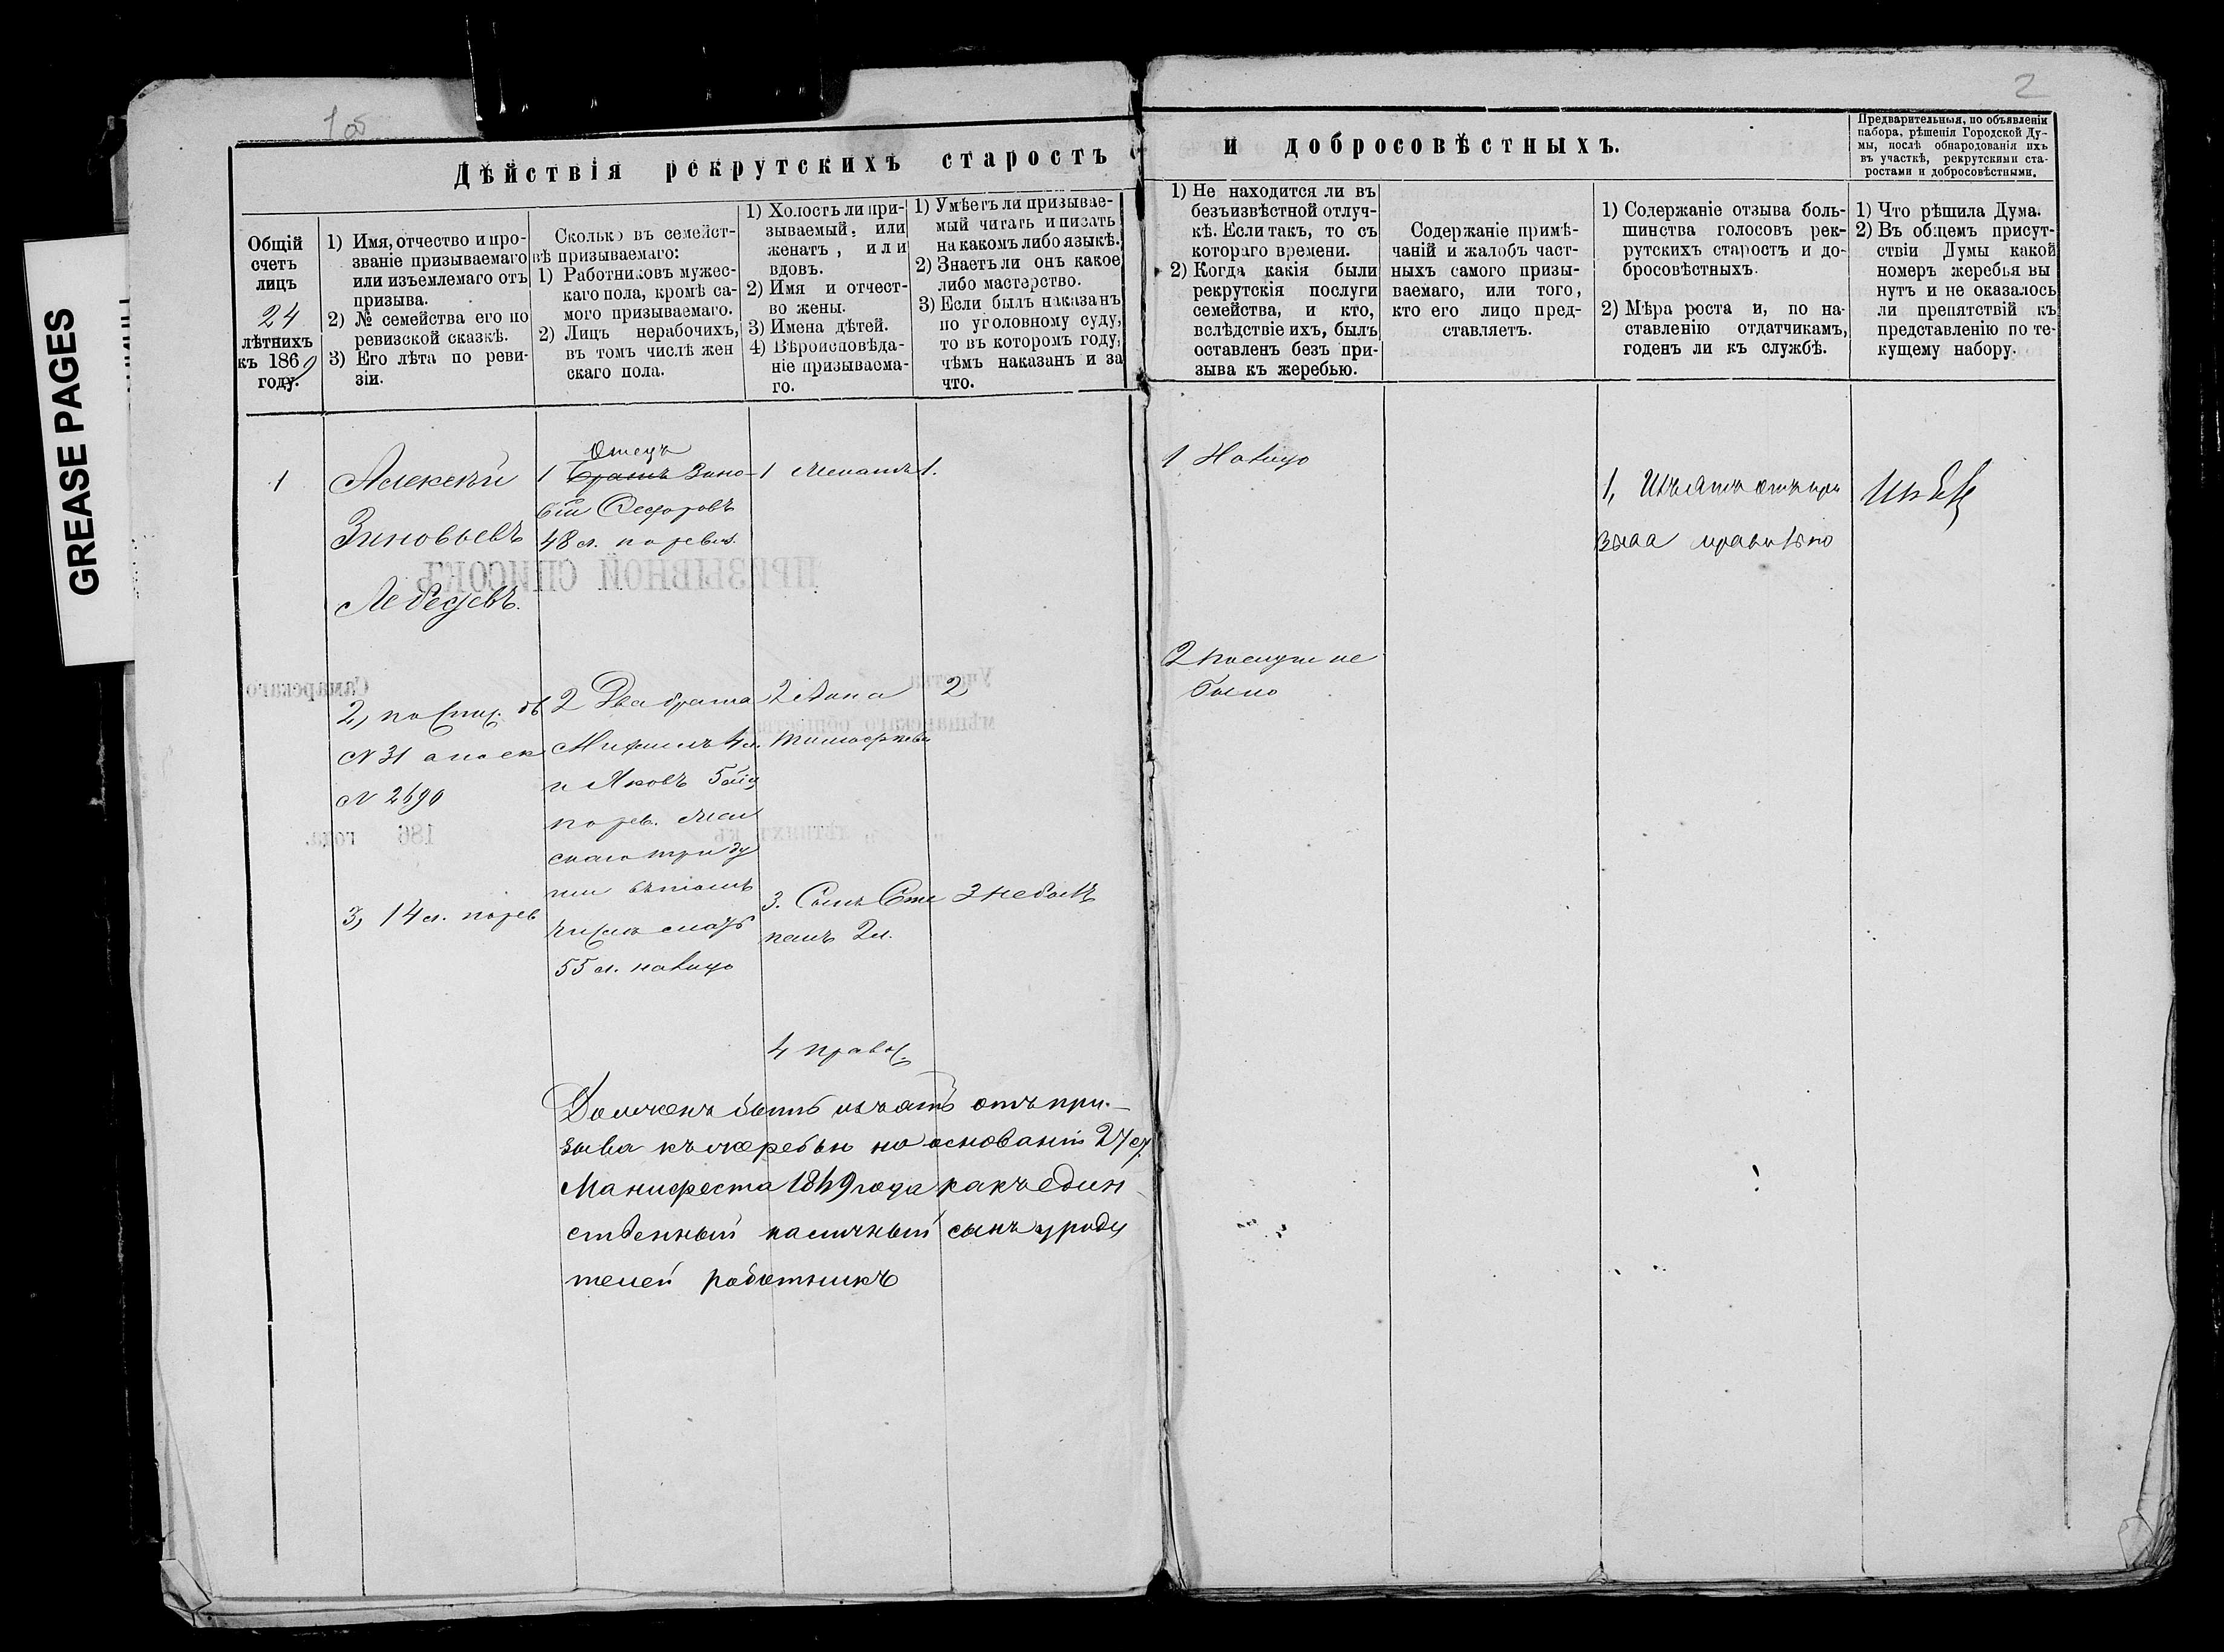 GREASE PAGES
1об
2
Дѣйствія рекрутскихъ старостъ
и добросовѣстныхъ.
Предварительныя, по объявленіи
набора, рѣшенія Городской Ду-
мы, послѣ обнародованія ихъ
въ участкѣ, рекрутскими ста-
ростами и добросовѣстными.
Общій
счетъ
лицъ
24
лѣтнихъ
къ 1869
году.
1) Имя, отчество и про-
званіе призываемаго
или изъемлемаго отъ
призыва.
2) № семейства его по
ревизской сказкѣ.
3) Его лѣта по реви-
зіи.
Сколько въ семейст-
вѣ призываемаго:
1) Работниковъ мужес-
каго пола, кромѣ са-
мого призываемаго.
2) Лицъ нерабочихъ,
въ томъ числѣ жен
скаго пола.
1) Холостъ ли при-
зываемый, или
женатъ, или
вдовъ.
2) Имя и отчест-
во жены.
3) Имена дѣтей.
4) Вѣроисповѣда-
ніе призываема-
го.
1) Умѣетъ ли призывае-
мый читать и писать
на какомъ либо языкѣ.
2) Знаетъ ли онъ какое
либо мастерство.
3) Если былъ наказанъ
по уголовному суду,
то въ которомъ году,
чѣмъ наказанъ и за
что.
1) Не находится ли въ
безъизвѣстной отлуч-
кѣ. Если такъ, то съ
котораго времени.
2) Когда какія были
рекрутскія послуги
семейства, и кто,
вслѣдствіе ихъ, былъ
оставленъ безъ при-
зыва къ жеребью.
Содержаніе примѣ-
чаній и жалобъ част-
ныхъ самого призы-
ваемаго, или того,
кто его лицо пред-
ставляетъ.
1) Содержаніе отзыва боль-
шинства голосовъ рек-
рутскихъ старостъ и до-
бросовѣстныхъ.
2) Мѣра роста и, по на-
ставленію отдатчикамъ,
годенъ ли къ службѣ.
1) Что рѣшила Дума.
2) Въ общемъ присут-
ствіи Думы какой
номеръ жеребья вы
нутъ и не оказалось
ли препятствій къ
представленію по те-
кущему набору.
1
Алексѣй
Зиновьевъ
Лебедевъ.
2, по спис. об
№ 31 а по ек
№ 2690
3, 14 л. по рев
Отецъ
1 Братъ Зино-
вій Федоровъ
48 л. по ревиз.
2 Два брата
Михаилъ 4 л.
и Яковъ 5
по рев. жен
скаго три ду
ши въ томъ
числѣ мать
55 л. налицо
1 Женатъ
2 Анна
Тимофеева
3. Сынъ Сте
панъ 2 л.
4 правос.
1.
2,
3 не былъ
Долженъ быть изъятъ отъ при-
зыва къ жеребью на основаніи 27 ст.
Манифеста 1849 года какъ един
ственный наличный сынъ у роди
телей работникъ
1 Налицо
2 Послуги не
было
1, Изъятъ отъ при
зыва правильно
ПРИЗЫВНОЙ СПИСОКЪ
Самарскаго
Участка
мѣщанскаго общества
лѣтнихъ къ
186 года.